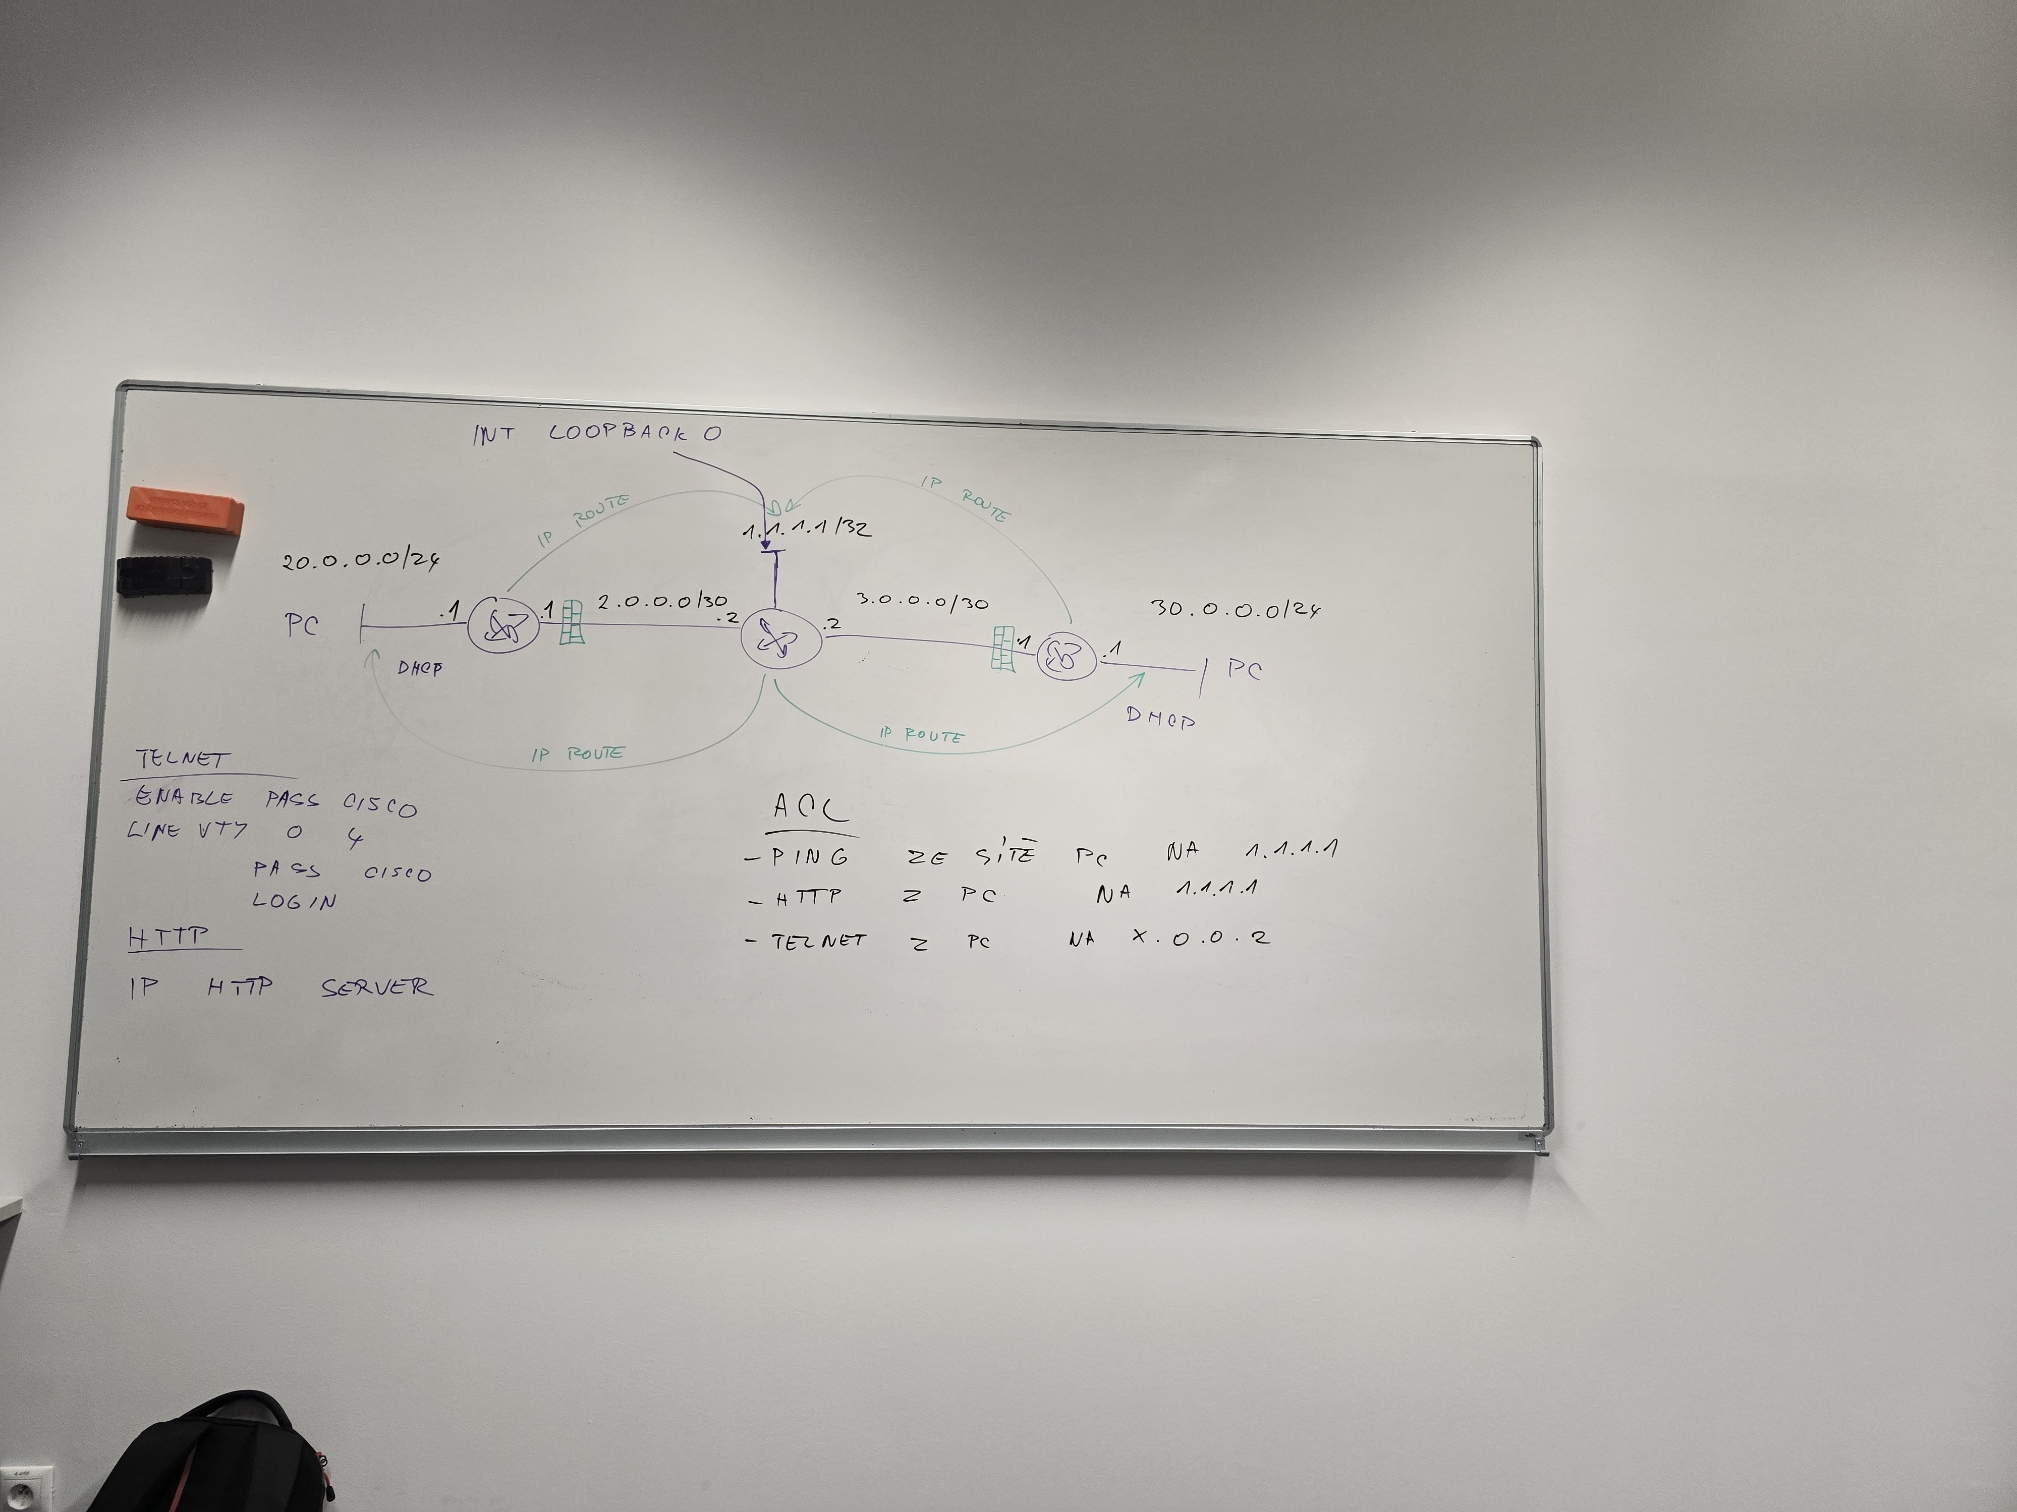 INT LOOPBACK 0
IP ROUTE
IP ROUTE
1.1.1.1/32
20.0.0.0/24
2.0.0.0/30
3.0.0.0/30
30.0.0.0/24
PC
.1
.1
.2
.2
.1
.1
PC
DHCP
DHCP
IP ROUTE
IP ROUTE
TELNET
ENABLE PASS CISCO
LINE VTY 0 4
PASS CISCO
LOGIN
HTTP
IP HTTP SERVER
ACL
- PING ZE SÍTĚ PC NA 1.1.1.1
- HTTP Z PC NA 1.1.1.1
- TELNET Z PC NA X.0.0.2